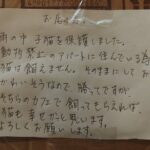 お店の方
雨の中 子猫を保護しました。
動物禁止のアパートに住んでいる為
猫は飼えません。そのままにして お
かわいそうなので、勝ってですが
そちらのカフェで 飼ってもらえれば、
猫も 幸せかと思います。
よろしくお願いします。